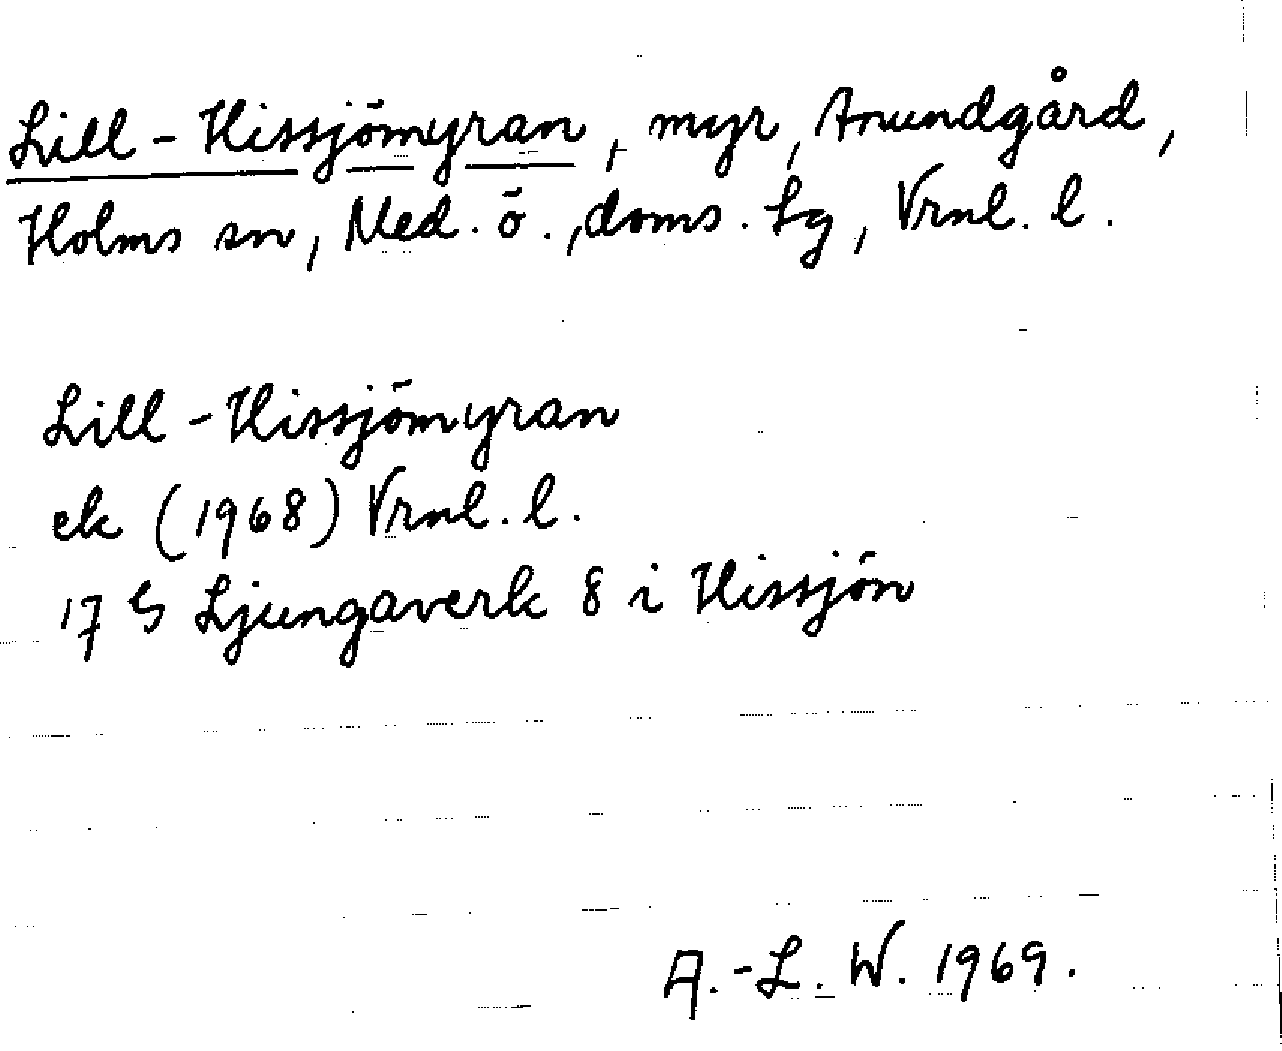 Lill-Hissjömyran, myr, Anundgård,
Holms sn, Med. ö., doms. Lg, Vrnl. l.
Lill-Hissjömyran
ek (1968) Vrnl. l.
17 G Ljungaverk 8 i Hissjön
A.-L. W. 1969.